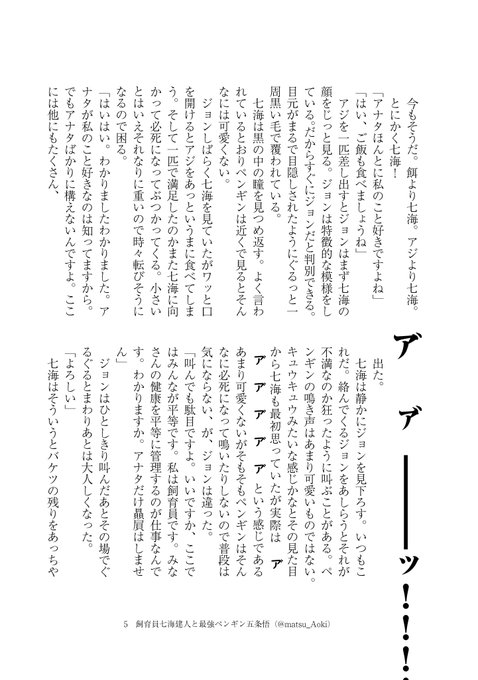 今もそうだ。餌より七海。アジより七海。
とにかく七海！
「アナタほんとに私のこと好きですよね」
「はい、ご飯も食べましょうね」
アジを一匹差し出すとジョンはまず七海の
顔をじっと見る。ジョンは特徴的な模様をし
ている。だからすぐにジョンだと判別できる。
目元がまるで目隠しされたようにぐるっと一
周黒い毛で覆われている。
七海は黒の中の瞳を見つめ返す。よく言わ
れているとおりペンギンは近くで見るとそん
なには可愛くない。
ジョンしばらく七海を見ていたがワッと口
を開けるとアジをあっというまに食べてしま
う。そして一匹で満足したのかまた七海に向
かって必死になってぶつかってくる。小さい
とはいえそれなりに重いので時々転びそうに
なるので困る。
「はいはい。わかりましたわかりました。ア
ナタが私のこと好きなのは知ってますから。
でもアナタばかりに構えないんですよ。ここ
には他にもたくさん、
ア゛ ア゛――ッ！！！！
出た。
七海は静かにジョンを見下ろす。いつもこ
れだ。絡んでくるジョンをあしらうとそれが
不満なのか狂ったように叫ぶことがある。ペ
ンギンの鳴き声はあまり可愛いものではない。
キュウキュウみたいな感じかなとその見た目
から七海も最初思っていたが実際は ア゛
ア゛ア゛ア゛ア゛ア゛ という感じである
あまり可愛くないがそもそもペンギンはそん
なに必死になって鳴いたりしないので普段は
気にならない、が、ジョンは違った。
「叫んでも駄目ですよ。いいですか、ここで
はみんなが平等です。私は飼育員です。みな
さんの健康を平等に管理するのが仕事なんで
す。わかりますか。アナタだけ贔屓はしませ
ん」
ジョンはひとしきり叫んだあとその場でぐ
るぐるとまわりあとは大人しくなった。
「よろしい」
七海はそういうとバケツの残りをあっちや
5 飼育員七海建人と最強ペンギン五条悟（@matsu_Aoki）